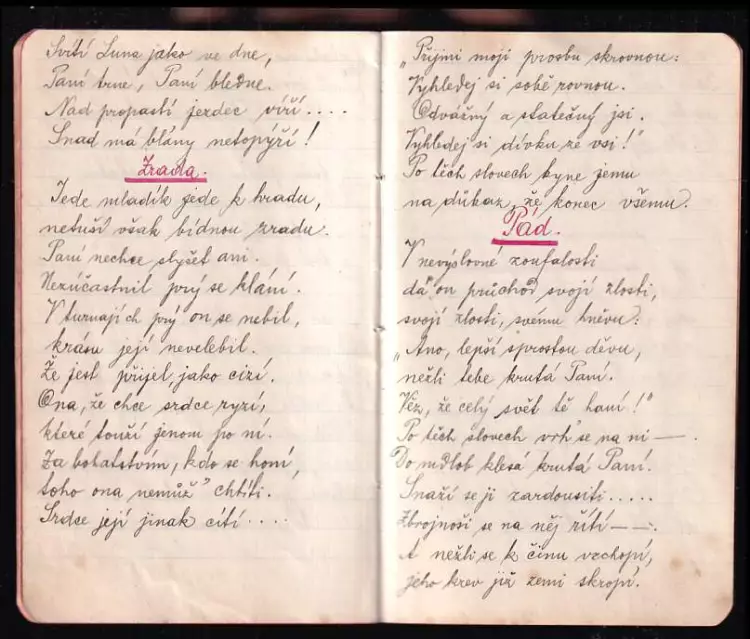 Svítí Luna jako ve dne,
Paní trne, Paní bledne.
Nad propastí jezdec víří....
Snad má blány netopýří!
Zrada.
Jede mladík jede k hradu,
netuší však bídnou zradu.
Paní nechce slyšet ani.
Nezúčastnil prý se klání.
V turnajích prý on se nebil,
krásu její nevelebil.
Že jest přijel, jako cizí.
Ona, že chce srdce ryzí,
které touží jenom po ní.
Za bohatstvím, kdo se honí,
toho ona nemůž" chtíti.
Srdce její jinak cítí....
„Přijmi moji prosbu skrovnou:
Vyhledej si sobě rovnou.
Odvážný a statečný jsi.
Vyhledej si dívku ze vsi!"
Po těch slovech kyne jemu
na důkaz, že konec všemu.
Pád.
V nevýslovné zoufalosti
dá on průchod svojí zlosti,
svojí zlosti, svému hněvu:
„Ano, lepší sprostou děvu,
nežli tebe krutá Paní.
Věz, že celý svět tě haní!"
Po těch slovech vrh" se na ni —.
Do mdlob klesá krutá Paní.
Snaží se ji zardousiti.....
Zbrojnoši se na něj řítí — —.
A nežli se k činu vzchopí,
jeho krev již zemi skropí.